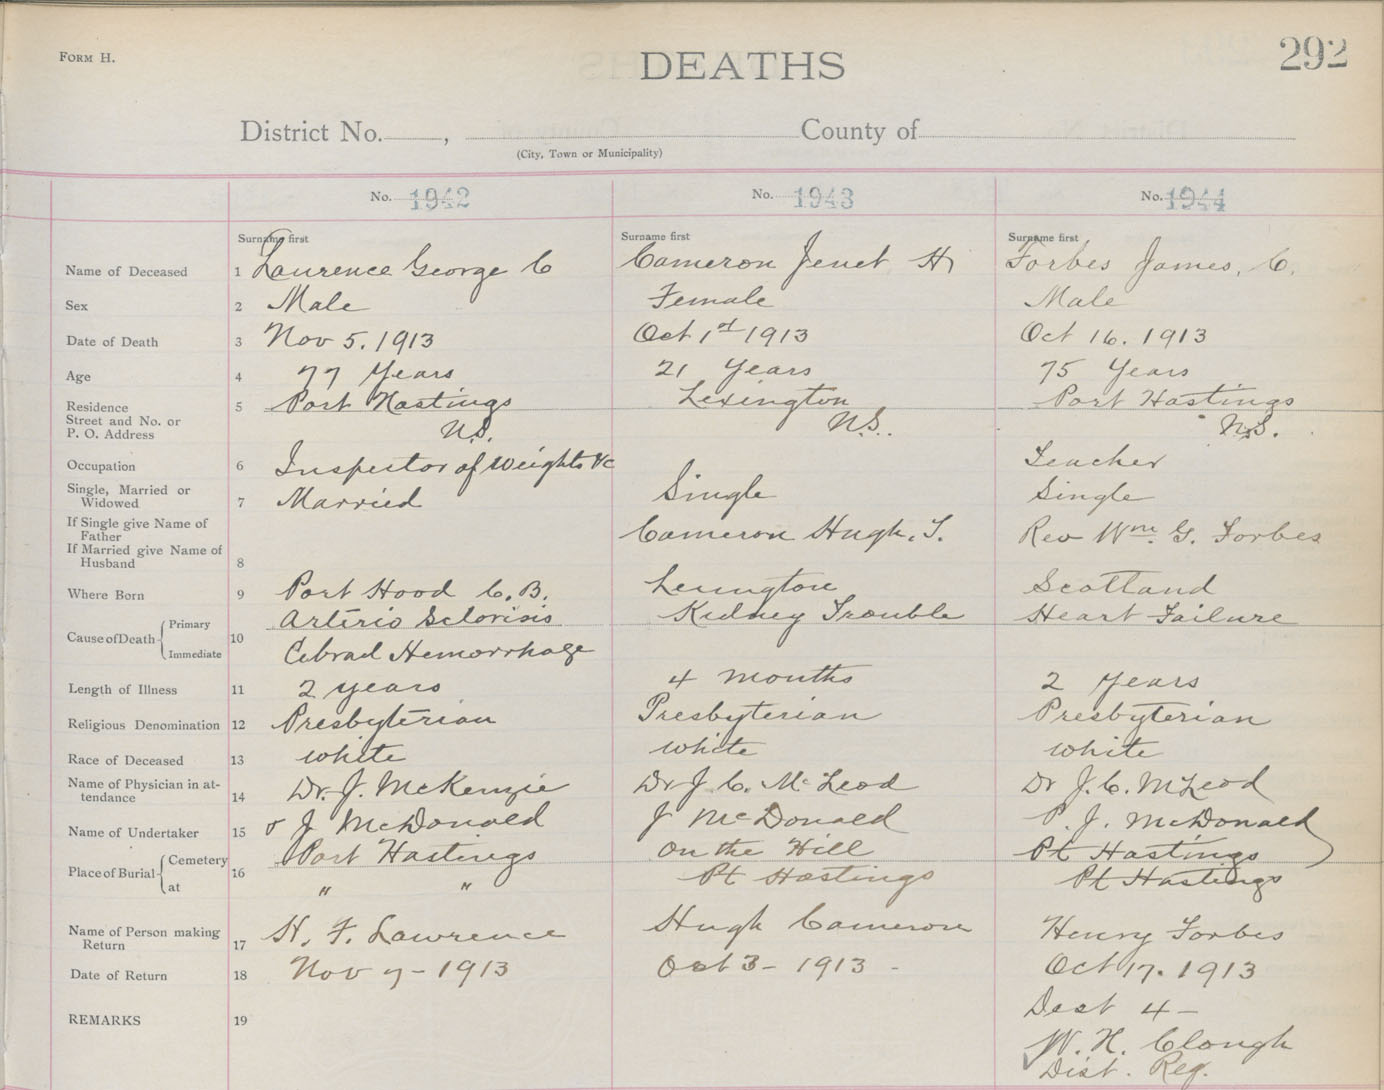 FORM H.
DEATHS
292
District No. , County of
(City, Town or Municipality)
No. 1942 No. 1943 No. 1944
Surname first Surname first Surname first
Name of Deceased 1 Laurence George C Cameron Jenet H Forbes James. C.
Sex 2 Male Female Male
Date of Death 3 Nov 5. 1913 Oct 1st 1913 Oct 16. 1913
Age 4 77 Years 21 Years 75 Years
Residence 5 Port Hastings Lexington Port Hastings
Street and No. or
P. O. Address N.S. N.S. N.S.
Occupation 6 Inspector of Weights &c Teacher
Single, Married or
Widowed 7 Married Single Single
If Single give Name of
Father Cameron Hugh. T. Rev Wm. G. Forbes
If Married give Name of
Husband 8
Where Born 9 Port Hood C.B. Lexington Scotland
Cause of Death 10
Primary Arterio Sclorisis Kidney Trouble Heart Failure
Immediate Cebrad Hemorrhage
Length of Illness 11 2 years 4 months 2 Years
Religious Denomination 12 Presbyterian Presbyterian Presbyterian
Race of Deceased 13 white white white
Name of Physician in at-
tendance 14 Dr. J. McKenzie Dr J. C. McLeod Dr J. C. McLeod
Name of Undertaker 15 J McDonald J McDonald P. J. McDonald
Place of Burial 16
Cemetery Port Hastings On the Hill Pt Hastings
at " " Pt Hastings Pt Hastings
Name of Person making
Return 17 H. F. Lawrence Hugh Cameron Henry Forbes
Date of Return 18 Nov 7 - 1913 Oct 3 - 1913 - Oct 17. 1913
REMARKS 19 Dest 4 -
W. H. Clough
Dist. Reg.